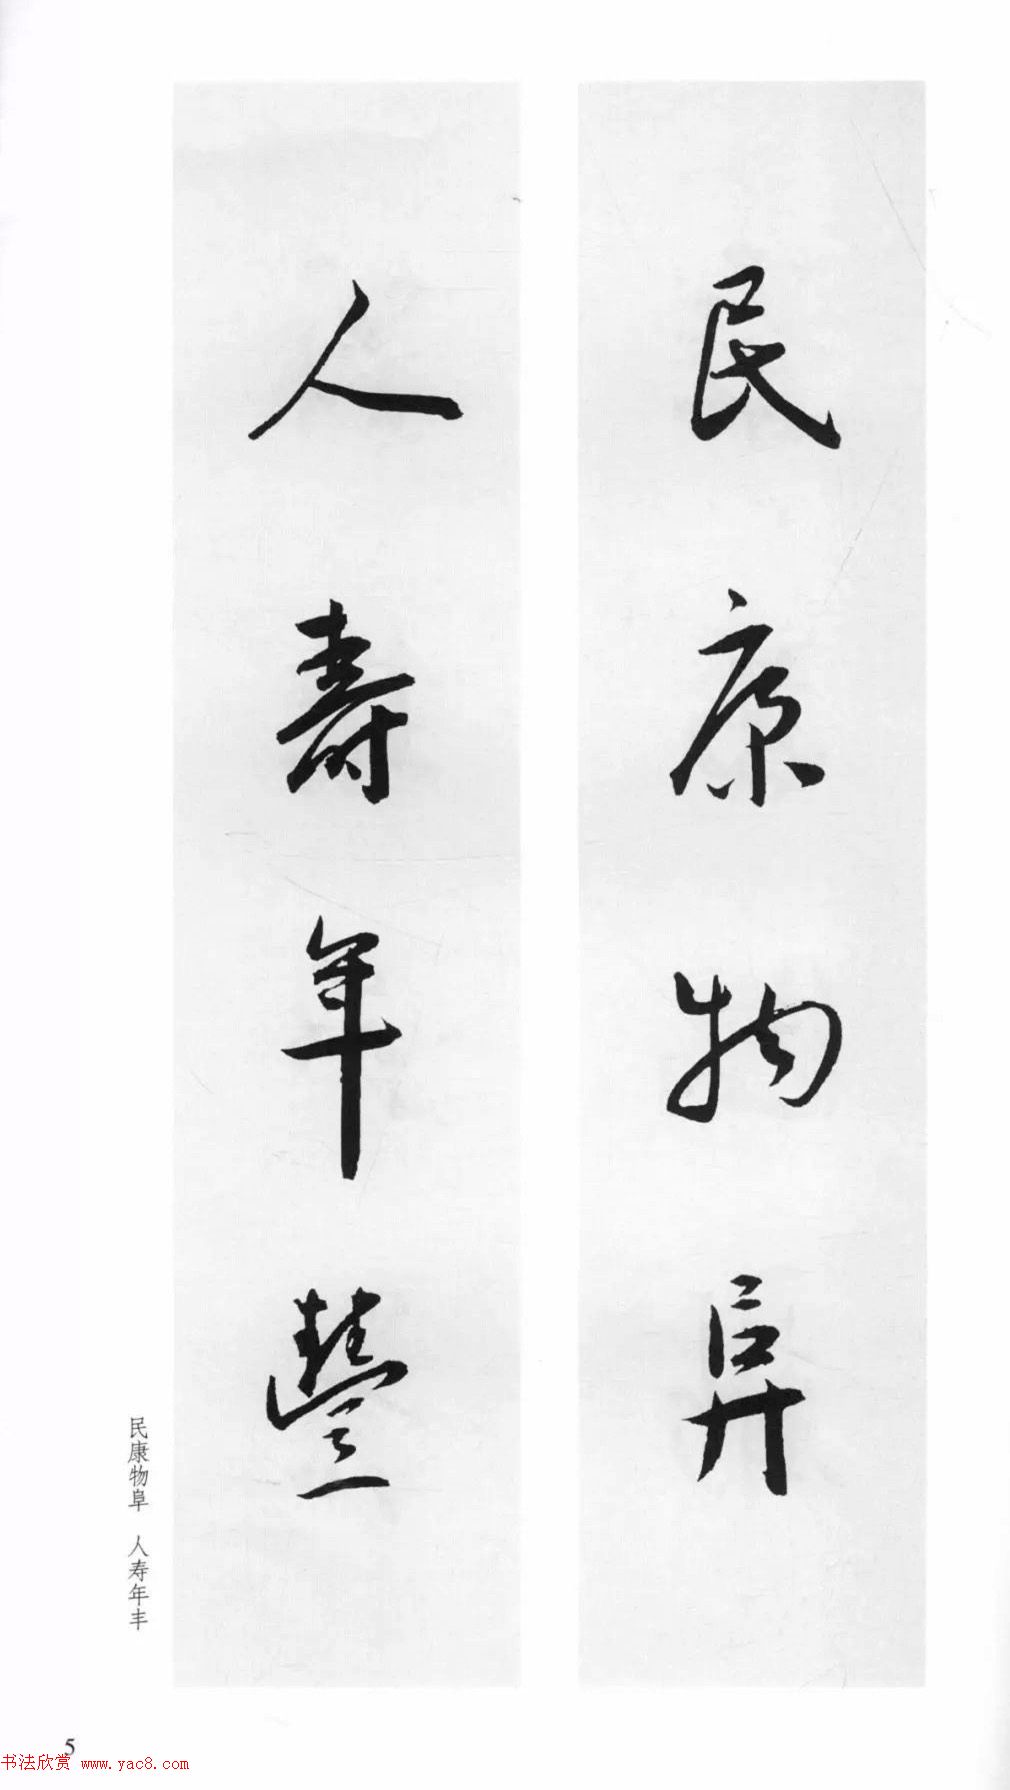 民康物阜
人壽年豐
民康物阜 人寿年丰
5
书法欣赏 www.yac8.com